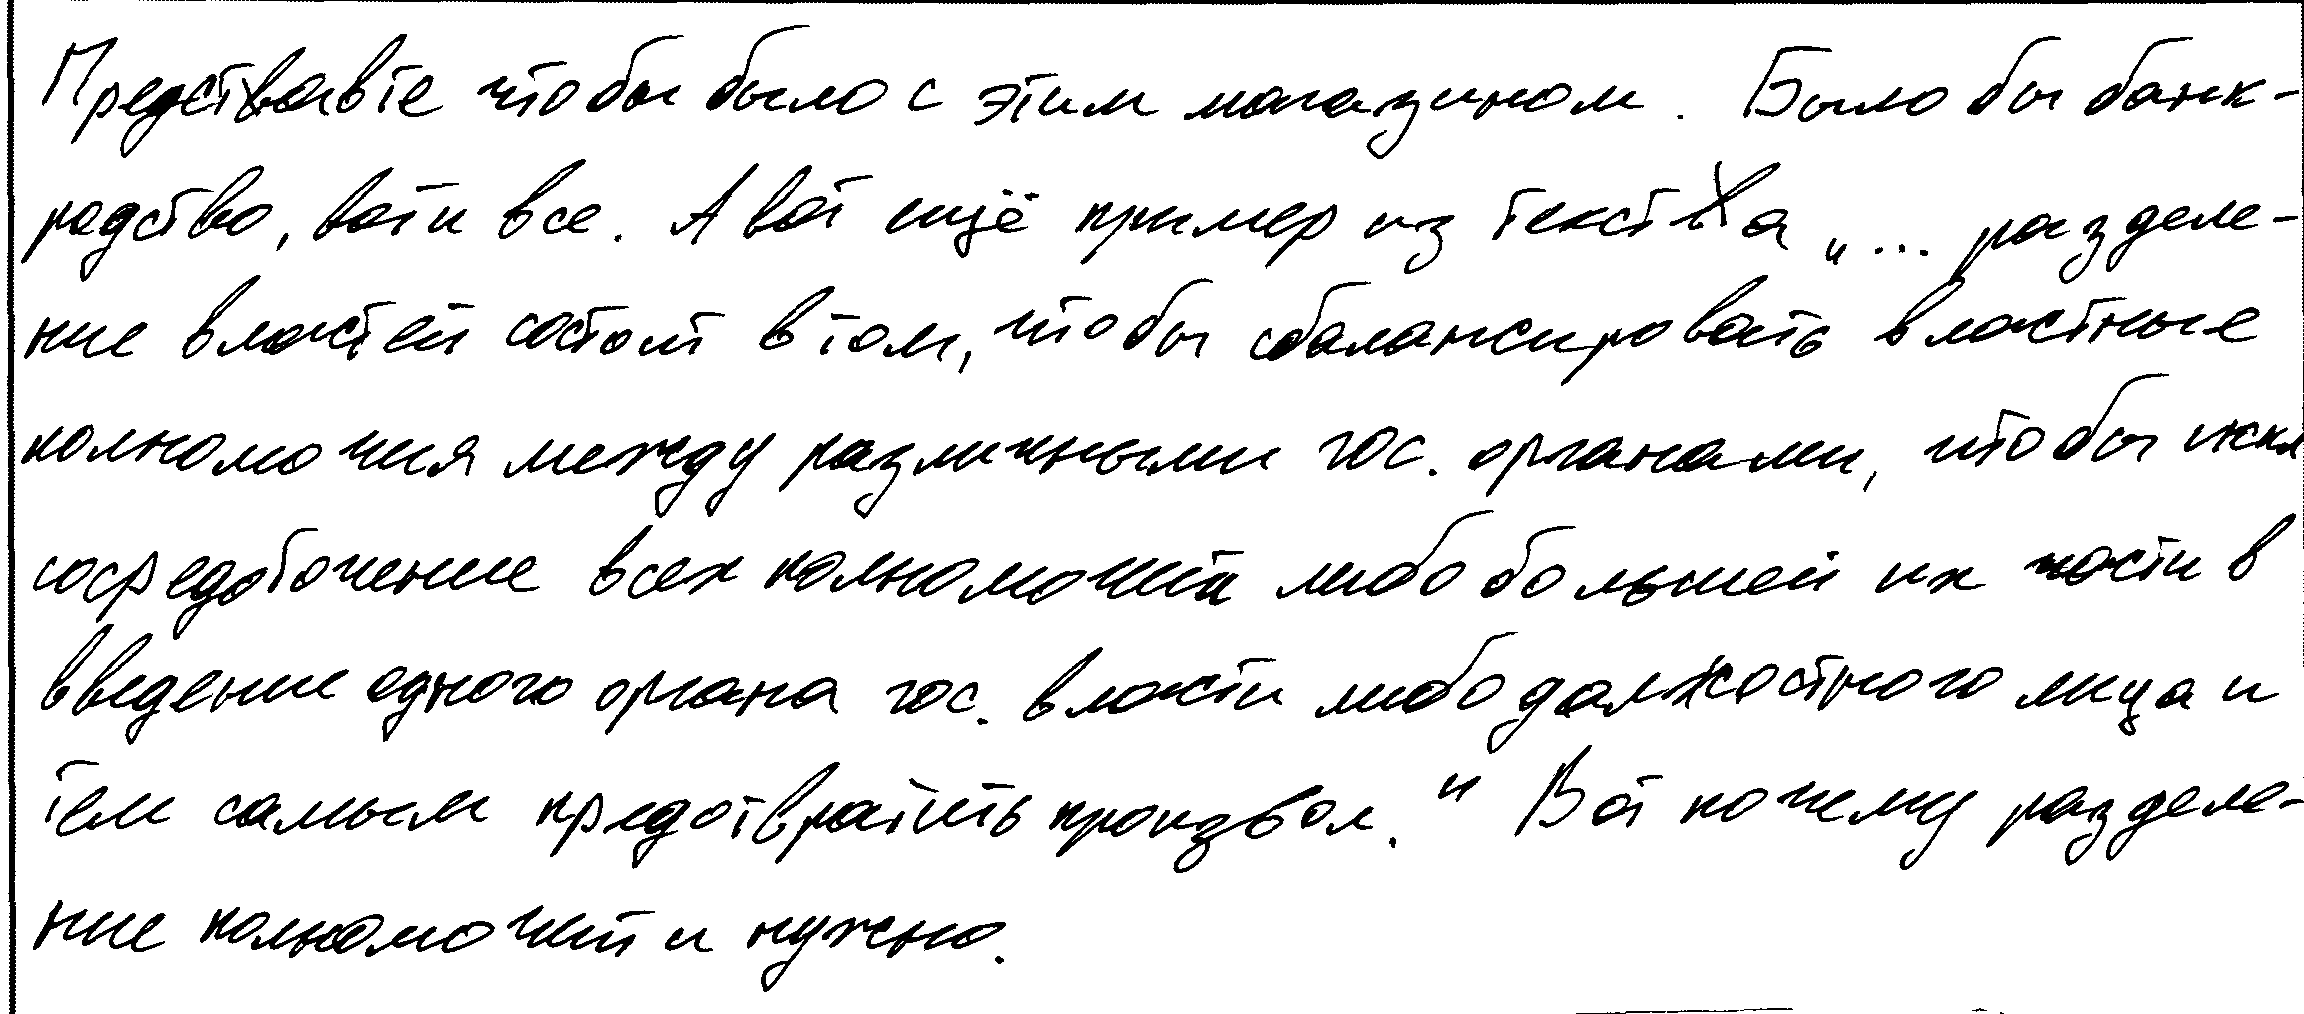 Представьте чтобы было с этим магазином. Было бы банк-
родство, вот и все. А вот ещё пример из текста „... разделе-
ние властей состоит в том, чтобы сбалансировать властные
полномочия между различными гос. органами, чтобы искл
сосредоточение всех полномочий либо большей их части в
введение одного органа гос. власти либо должостного лица и
тем самым предотвратить произвол." Вот почему разделе-
ние полномочий и нужно.